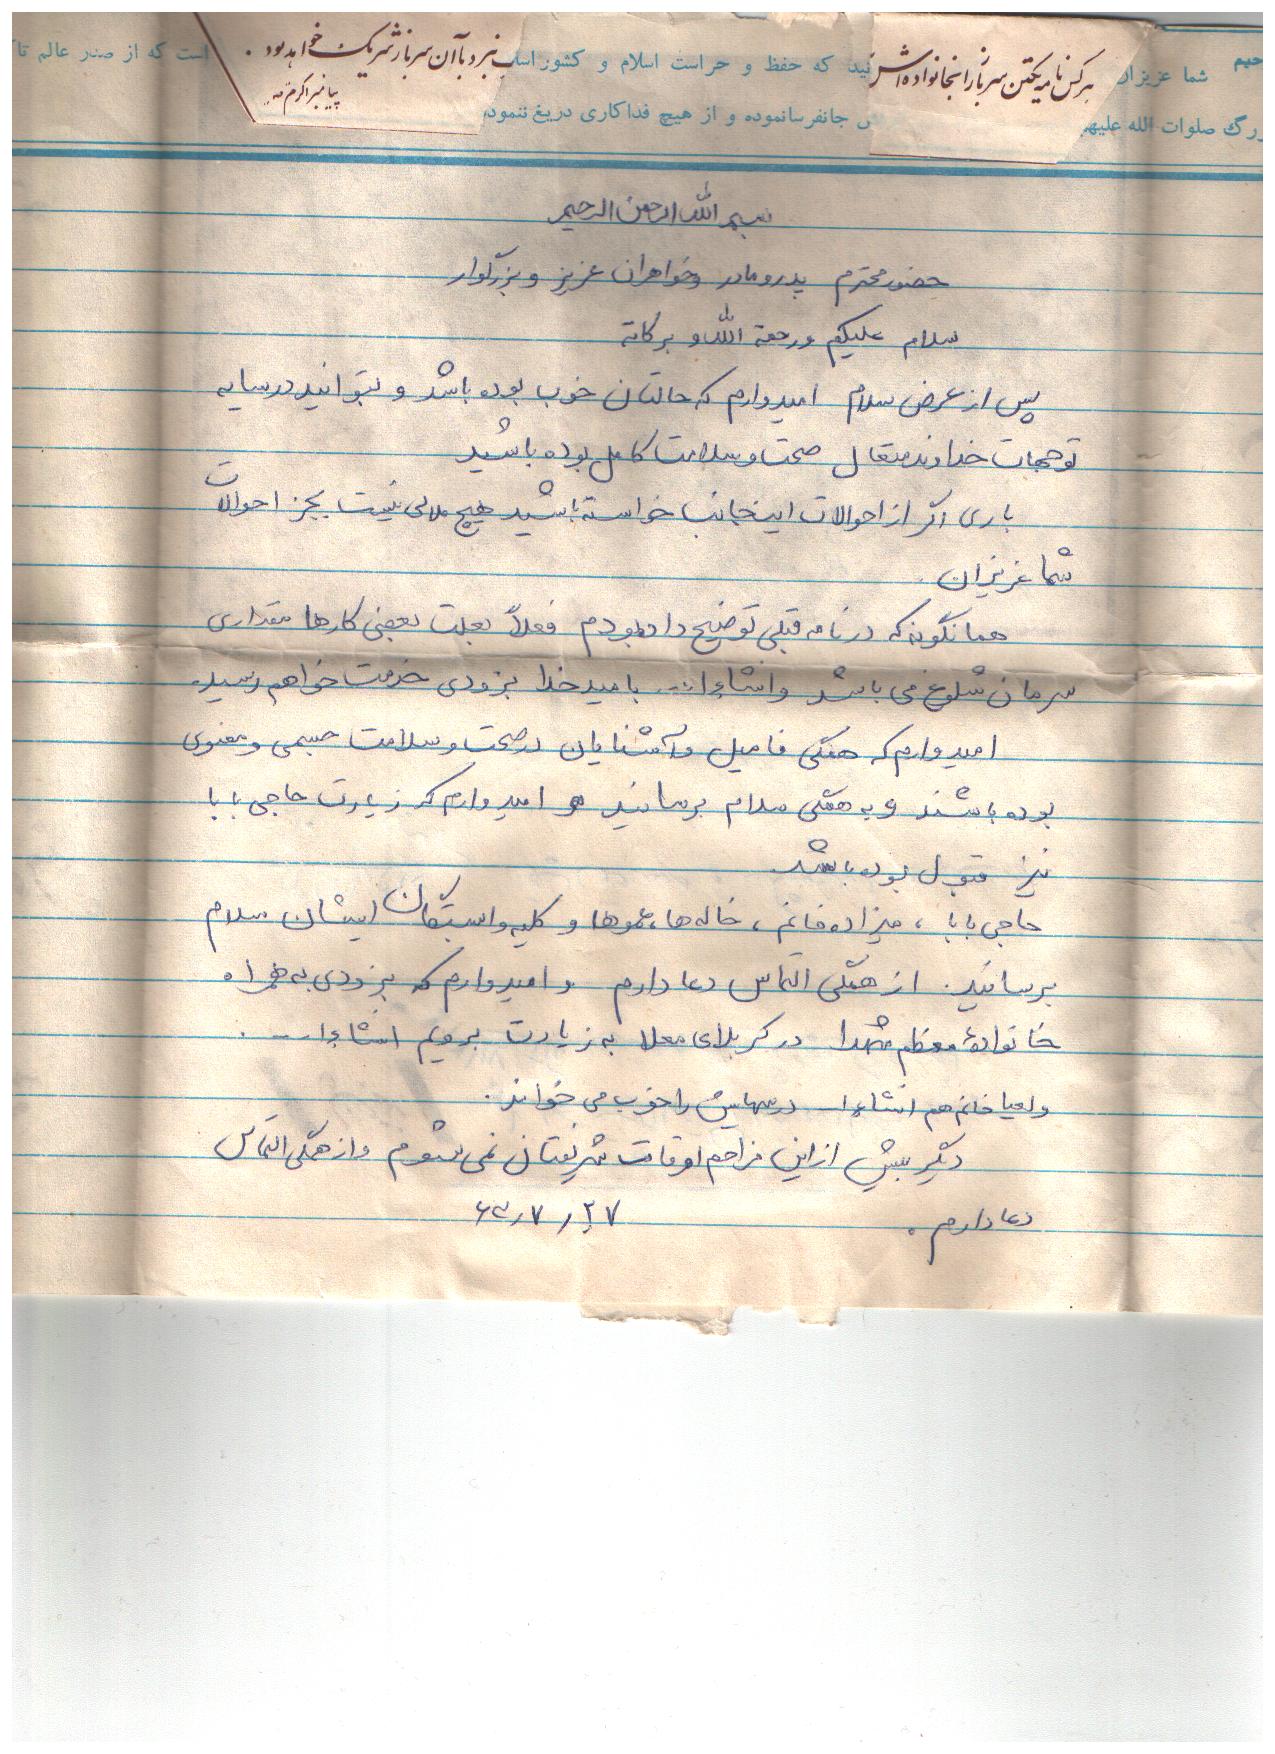 حیم شما عزیزان
نید که حفظ و حراست اسلام و کشور اسلا
است که از صدر عالم تا
هر کس نامه یکتن سرباز را بخانواده اش
برد با آن سرباز شریک خواهد بود.
پیامبر اکرم
زرگ صلوات الله علیهم
جانفرسا نموده و از هیچ فداکاری دریغ ننموده
بسم الله الرحمن الرحیم
حضور محترم پدر و مادر و خواهران عزیز و بزرگوار
سلام علیکم و رحمة الله و برکاته
پس از عرض سلام امیدوارم که حالتان خوب بوده باشد و بتوانید در سایه
توجهات خداوند متعال صحت و سلامت کامل بوده باشید
باری اگر از احوالات اینجانب خواسته باشید هیچ ملالی نیست بجز احوالات
شما عزیزان.
همانگونه که در نامه قبلی توضیح داده بودم فعلاً بعلت بعضی کارها مقداری
سرمان شلوغ می باشد و انشاءا... بامید خدا بزودی خدمت خواهم رسید.
امیدوارم که همگی فامیل و آشنایان در صحت و سلامت جسمی و معنوی
بوده باشند و به همگی سلام برسانید و امیدوارم که زیارت حاجی بابا
نیز قبول بوده باشد.
حاجی بابا، میزاده خانم، خاله ها، عموها و کلیه وابستگان ایشان سلام
برسانید. از همگی التماس دعا دارم و امیدوارم که بزودی به همراه
خانوادهٔ معظم شهدا در کربلای معلا به زیارت برویم انشاءا... .
خانم هم انشاءا... درسهایش را خوب می خواند.
دیگر بیش از این مزاحم اوقات شریفتان نمی شوم و از همگی التماس
دعا دارم. ۶۳٫۷٫۲۷